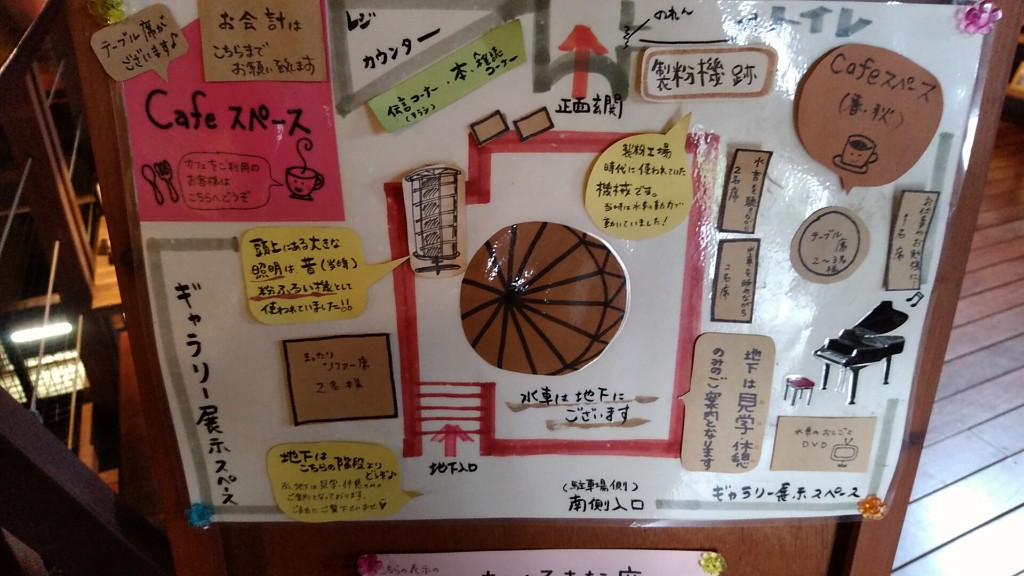 テーブル席が
ございます♪
お会計は
こちらまで
お願い致します
レジ
カウンター
伝言コーナー・本・雑誌
コーナー
(チラシ)
正面玄関
のれん
トイレ
製粉機跡
Cafeスペース
(喜・秋)
Cafe スペース
かふぇをご利用の
お客様は
こちらへどうぞ
製粉工場
時代に使われていた
機械です。
当時は水車の動力で
動いていました!
水音を聴きながら
2名席
水車を眺めながら
2名席
テーブル席
2〜3名
様
1名席
頭上にある大きな
照明は昔(当時)
粉ふるい機として
使われていました!!
ギャラリー展示スペース
まったり
ソファー席
2名様
水車は地下に
ございます
地下は見学・休憩
のみのご案内となります
水車のおしごと
DVD
地下は
こちらの階段より
どうぞ♪
地下入口
(駐車場側)
南側入口
ギャラリー展示スペース
こちらの表示の